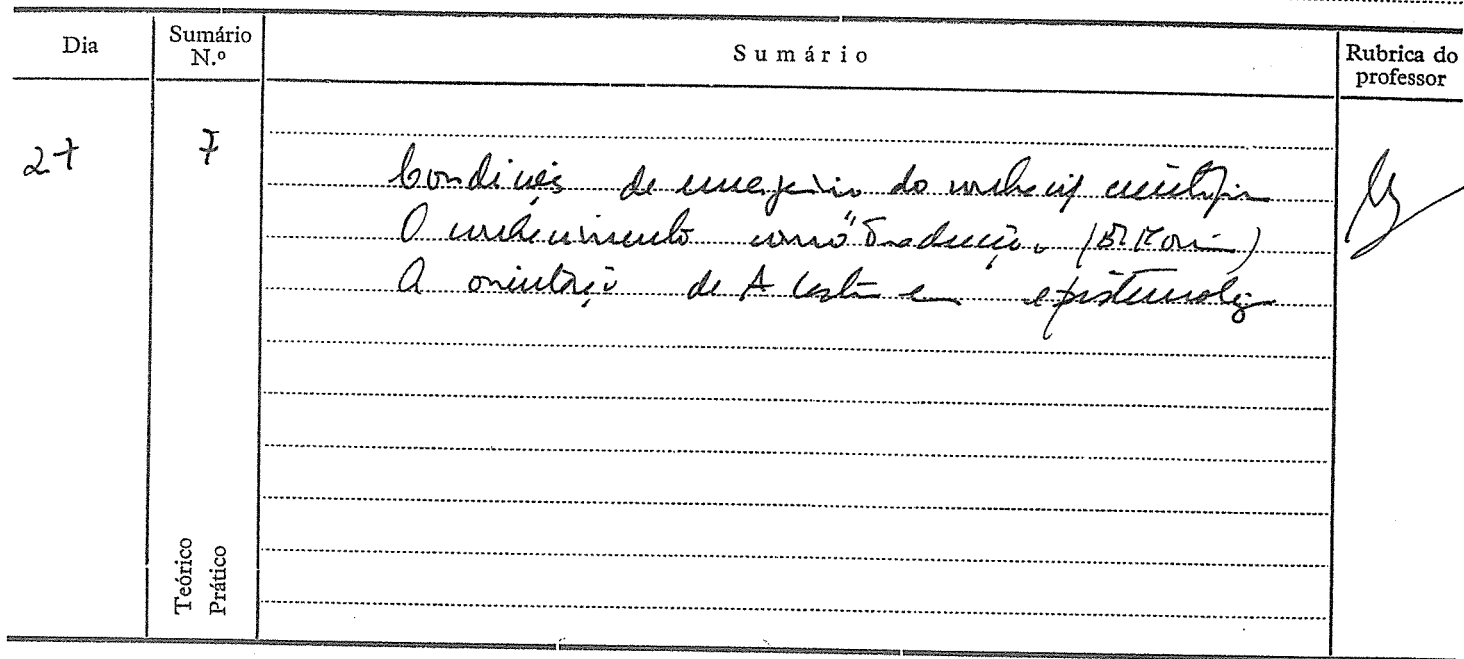 Dia Sumário N.º Sumário Rubrica do professor
27 7
Condições de emergência do conhecim científico
O conhecimento como "Tradução" (E. Morin)
A orientação de A em epistemologia
Teórico
Prático